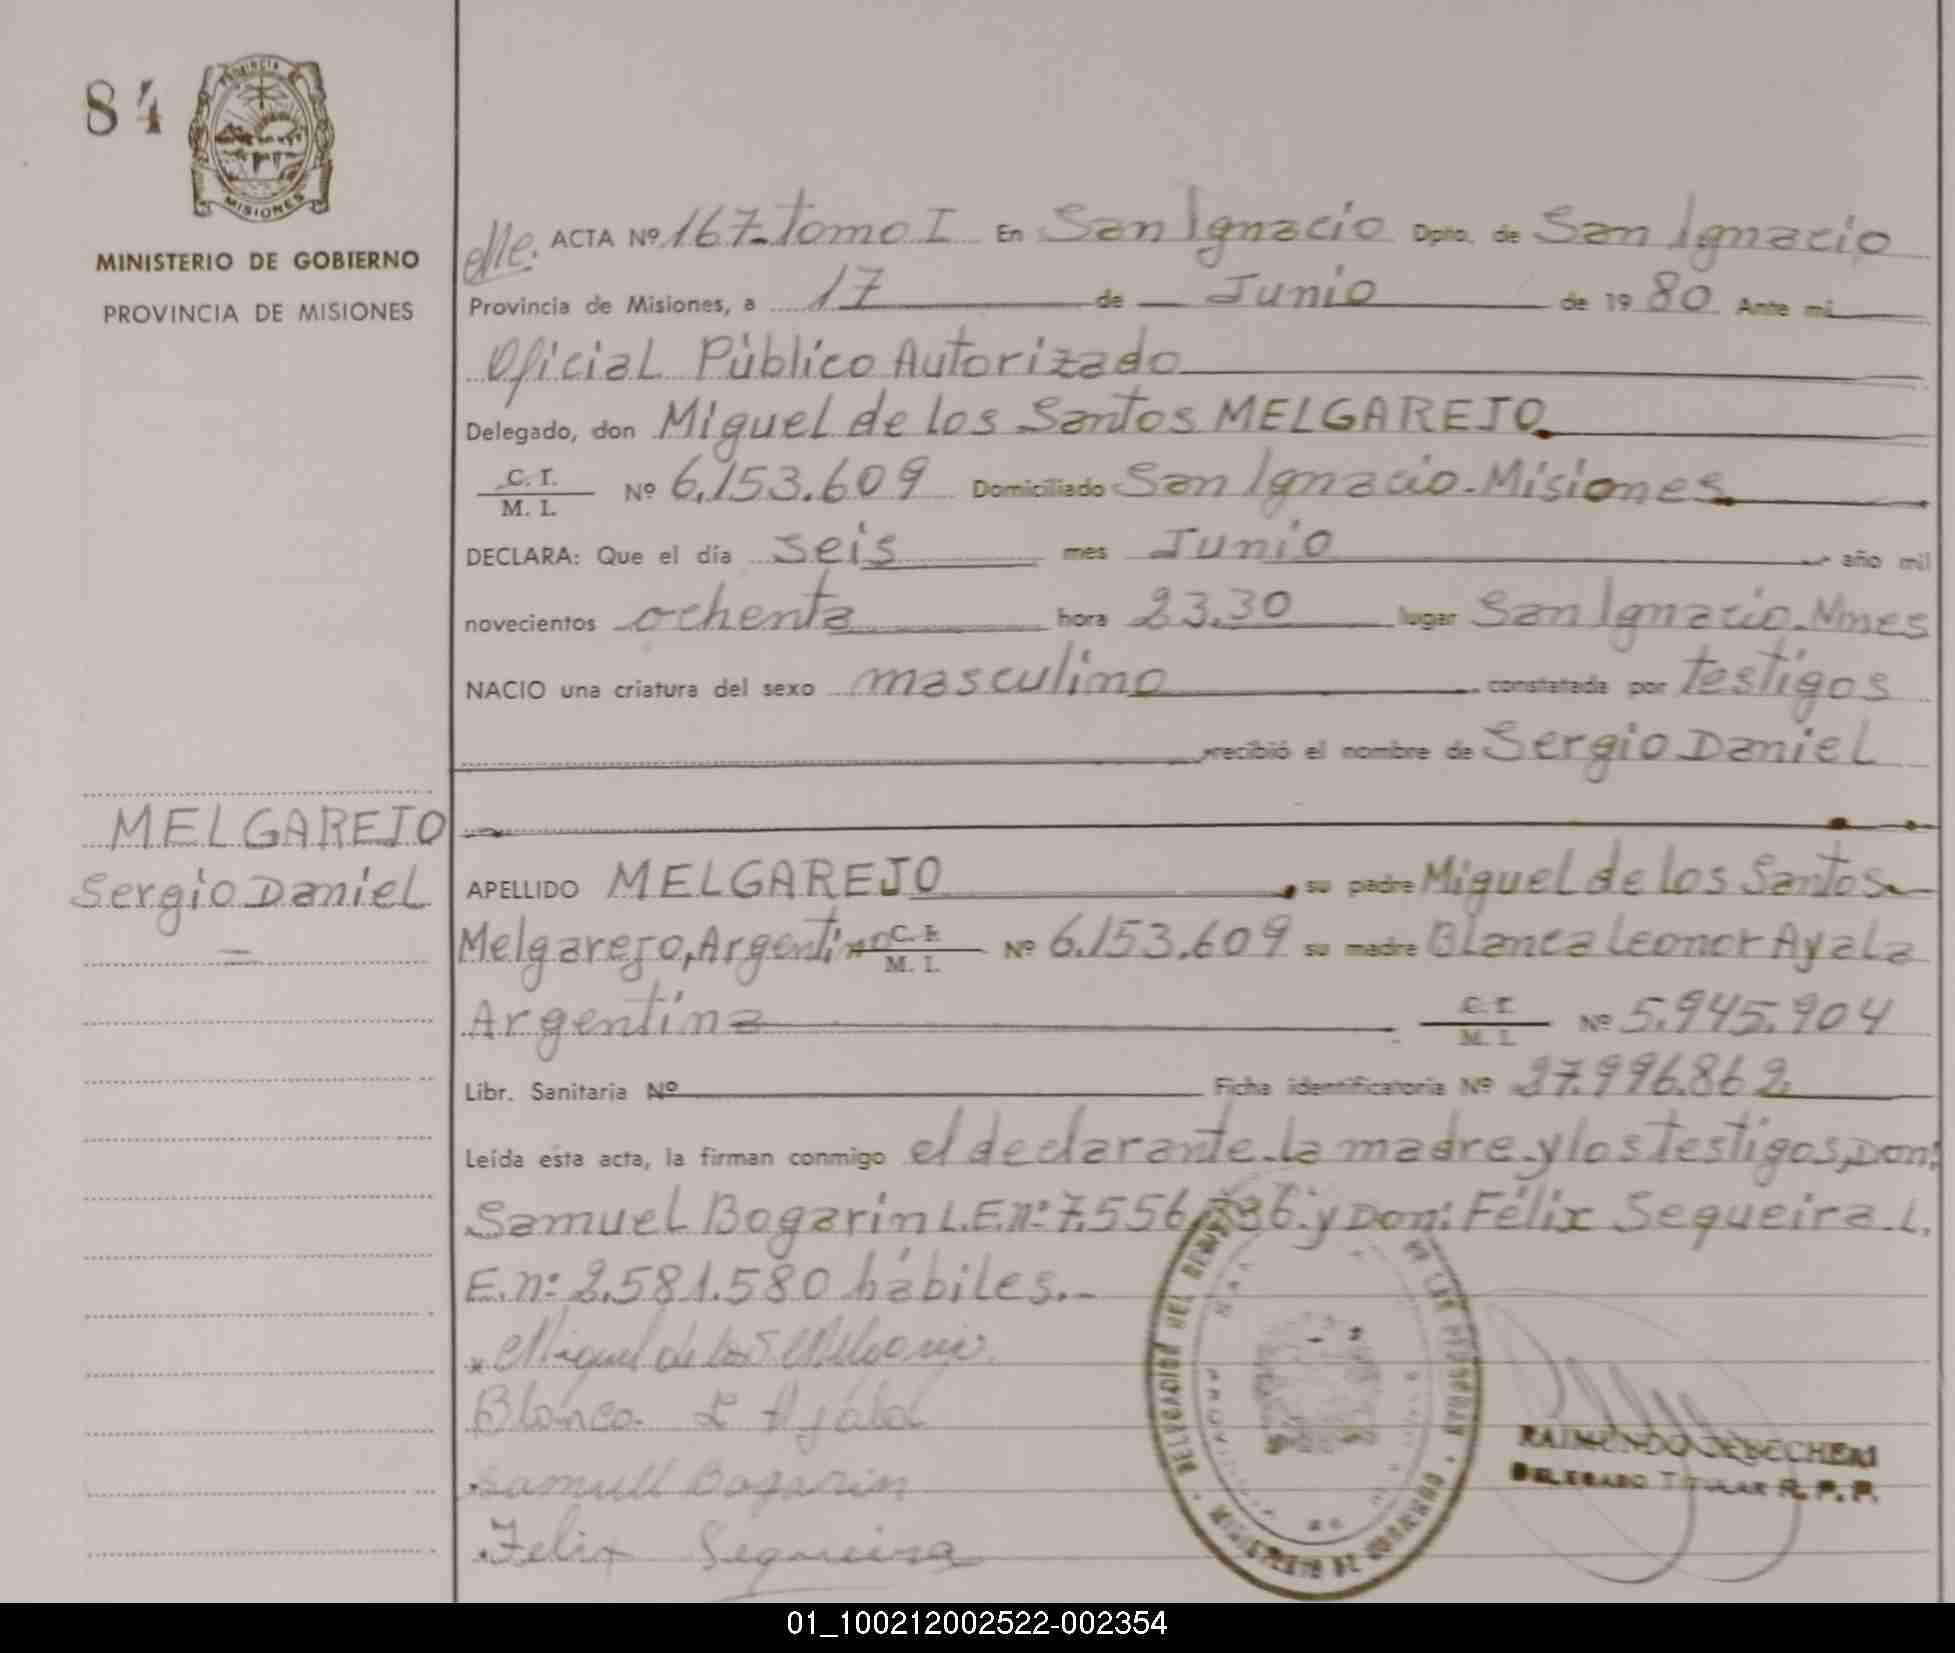 84
PROVINCIA DE
MISIONES
MINISTERIO DE GOBIERNO
PROVINCIA DE MISIONES
MELGAREJO
Sergio Daniel
ACTA Nº 167-tomo I En San Ignacio Dpto. de San Ignacio
Provincia de Misiones, a 17 de Junio de 1980 Ante mi
Oficial Público Autorizado
Delegado, don Miguel de los Santos MELGAREJO
C. I. / M. I. Nº 6.153.609 Domiciliado San Ignacio-Misiones
DECLARA: Que el día seis mes Junio año mil
novecientos ochenta hora 23.30 lugar San Ignacio-Mnes
NACIO una criatura del sexo masculino constatada por testigos
recibió el nombre de Sergio Daniel
APELLIDO MELGAREJO su padre Miguel de los Santos
Melgarejo, Argentino C. I. / M. I. Nº 6.153.609 su madre Blanca Leonor Ayala
Argentina C. I. / M. I. Nº 5.945.904
Libr. Sanitaria Nº Ficha identificatoria Nº 27.996.862
Leída esta acta, la firman conmigo el declarante-la madre-y los testigos, Don:
Samuel Bogarin L.E.nº 7.556. y Don: Félix Sequeira-L.
E.nº 2.581.580 hábiles.-
Miguel de los S
Blanca L Ayala
Samuel Bogarin
Felix Sequeira
DELEGACION DEL DE LAS PERSONAS
MINISTERIO DE GOBIERNO
RAIMUNDO
DELEGADO TITULAR R. P. P.
01_100212002522-002354